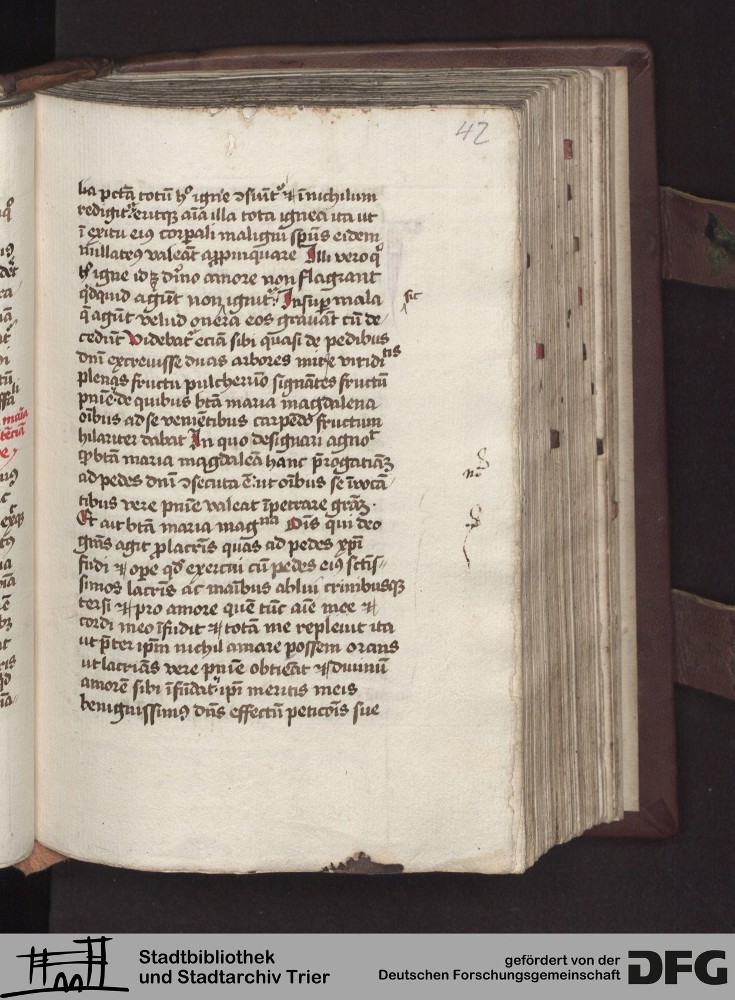 42
ba pctā totū hͦ igne ↄsūit᷑ ⁊ ī nichilum
redigit᷑ eritqꝫ aīa illa tota ignea ita ut
ī exitu eiꝰ corꝑali maligni spūs eidem
nullatenꝰ valeāt appinquare Illi vero qͥ
hͦ igne idꝫ dīno amore non flagrant
qͥdquid agūt non ignit᷑ Insuꝑ mala
q̄ agūt velud onera eos gravāt cū de
cedūt Videbat᷑ eciā sibi quasi de pedibus
dnī excrevisse duas arbores mire viriditis
plenas fructu pulcherrīo signātes fructū
pnīe de quibus btā maria magdalena
oībus ad se venietibus carpēdo fructum
hilariter dabat In quo designari agnoͭ
ꝙ btā maria magdaleā hanc p̄rogatiāꝫ
ad pedes dnī ↄsecuta ē ut oībus se īvocā
tibus vere pnīe valeat īpetrare grāꝫ
Et ait btā maria magna Oīs qui deo
grās agit ꝓ lacrīs quas ad pedes xpī
fudi ⁊ oꝑe qd̄ exercui cū pedes eiꝰ sctīs
simos lacrīs ac maībus ablui crinibusqꝫ
tersi ⁊ pro amore quē tūc aīe mee ⁊
cordi meo īfudit ⁊ totā me replevit ita
ut p̄ter ipm̄ nichil amare possem orans
ut lacrīas vere pnīe obtieāt ⁊ divinū
amorē sibi īfūdāt᷑ ipī meritis meis
benignissimꝰ dn̄s effectū peticōis sue
sic
Stadtbibliothek
und Stadtarchiv Trier
gefördert von der
Deutschen Forschungsgemeinschaft
DFG